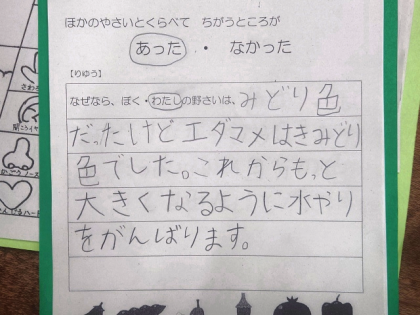 ほかのやさいとくらべて ちがうところが
あった ・ なかった
【りゆう】
なぜなら、ぼく・わたしの野さいは、みどり色
だったけどエダマメはきみどり
色でした。これからもっと
大きくなるように水やり
をがんばります。